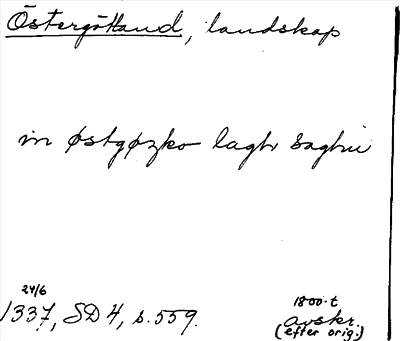 Östergötland, landskap
in østgøzko lagh saghu
24/6
1337, SD 4, s. 559.
1800-t
avskr.
(efter orig.)